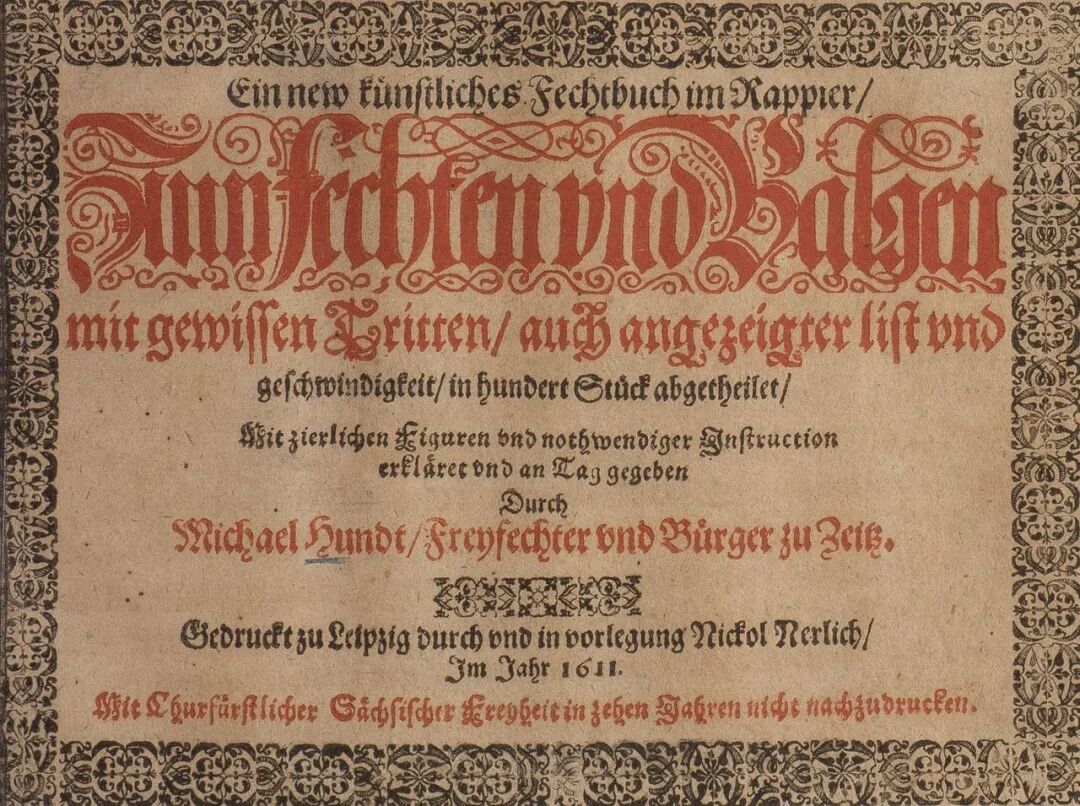 Ein new künstliches Fechtbuch im Rappier/
Zum fechten vnd Balgen
mit gewissen Tritten/ auch angezeigter list vnd
geschwindigkeit/ in hundert Stück abgetheilet/
Mit zierlichen Figuren vnd nothwendiger Instruction
erkläret vnd an Tag gegeben
Durch
Michael Hundt/ Freyfechter vnd Bürger zu Zeitz.
Gedruckt zu Leipzig durch vnd in vorlegung Nickol Nerlich/
Im Jahr 1611.
Mit Churfürstlicher Sächsischer Freyheit in zehen Jahren nicht nachzudrucken.